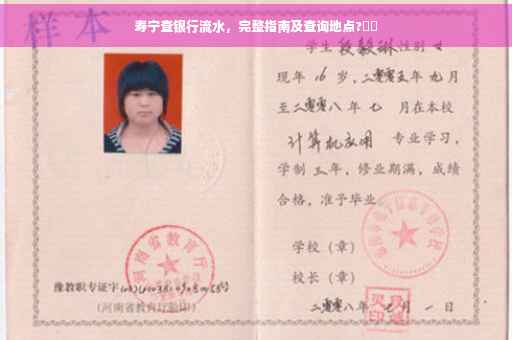 寿宁查银行流水，完整指南及查询地点?
样本
学生 段毅琳 性别 女
现年 16 岁，二零零五年 九月
至二零零八年 七 月在本校
计算机应用 专业学习，
学制 三年，修业期满，成绩
合格，准予毕业
学校（章）
校长（章）
二零零八年 月 一 日
河南省教育厅
豫教职专证字
（河南省教育厅验印）